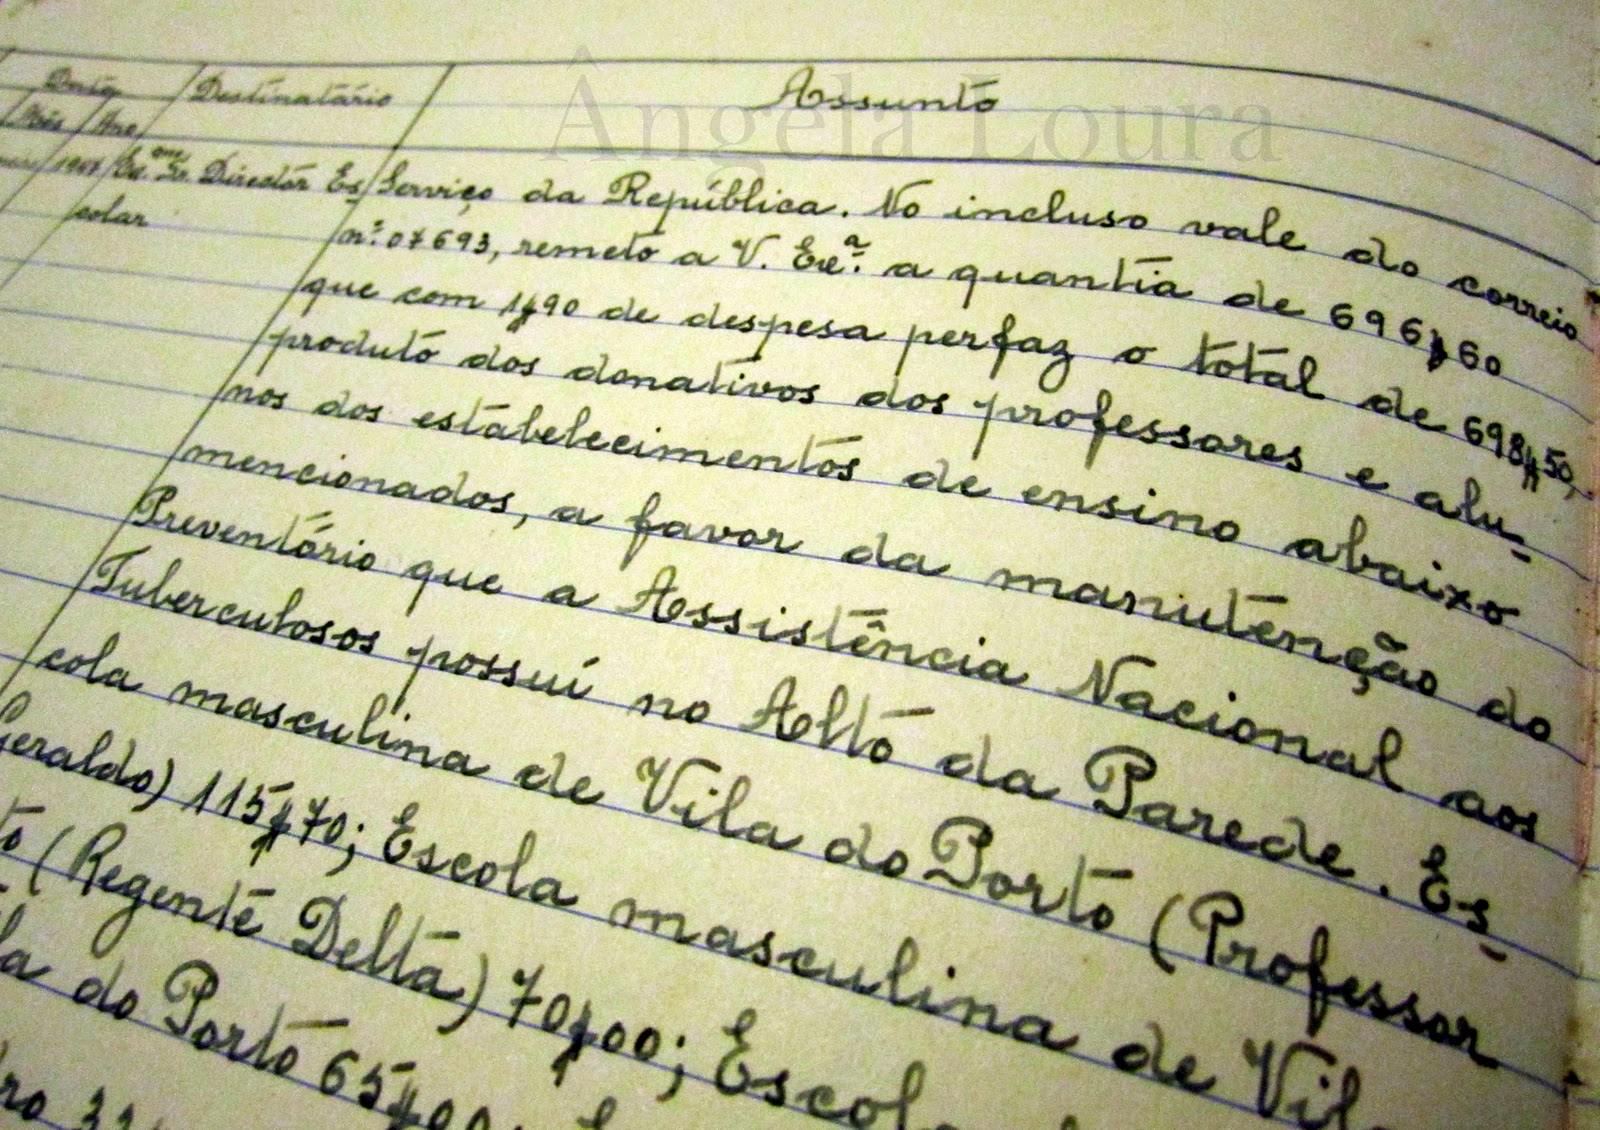 Data Destinatário Assunto
Mês Ano
Ângela Loura
Ex.mo Sr. Director Es- Serviço da República. No incluso vale do correio
colar n.º 07693, remeto a V. Ex.ª a quantia de 696$60
que com 1$90 de despesa perfaz o total de 698$50,
produto dos donativos dos professores e alu-
nos dos estabelecimentos de ensino abaixo
mencionados, a favor da manutenção do
Preventório que a Assistência Nacional aos
Tuberculosos possuí no Alto da Parede. Es-
cola masculina de Vila do Porto (Professor
Geraldo) 115$70; Escola masculina de Vil
to (Regente Delta) 70$00; Escol
la do Porto 65$00;